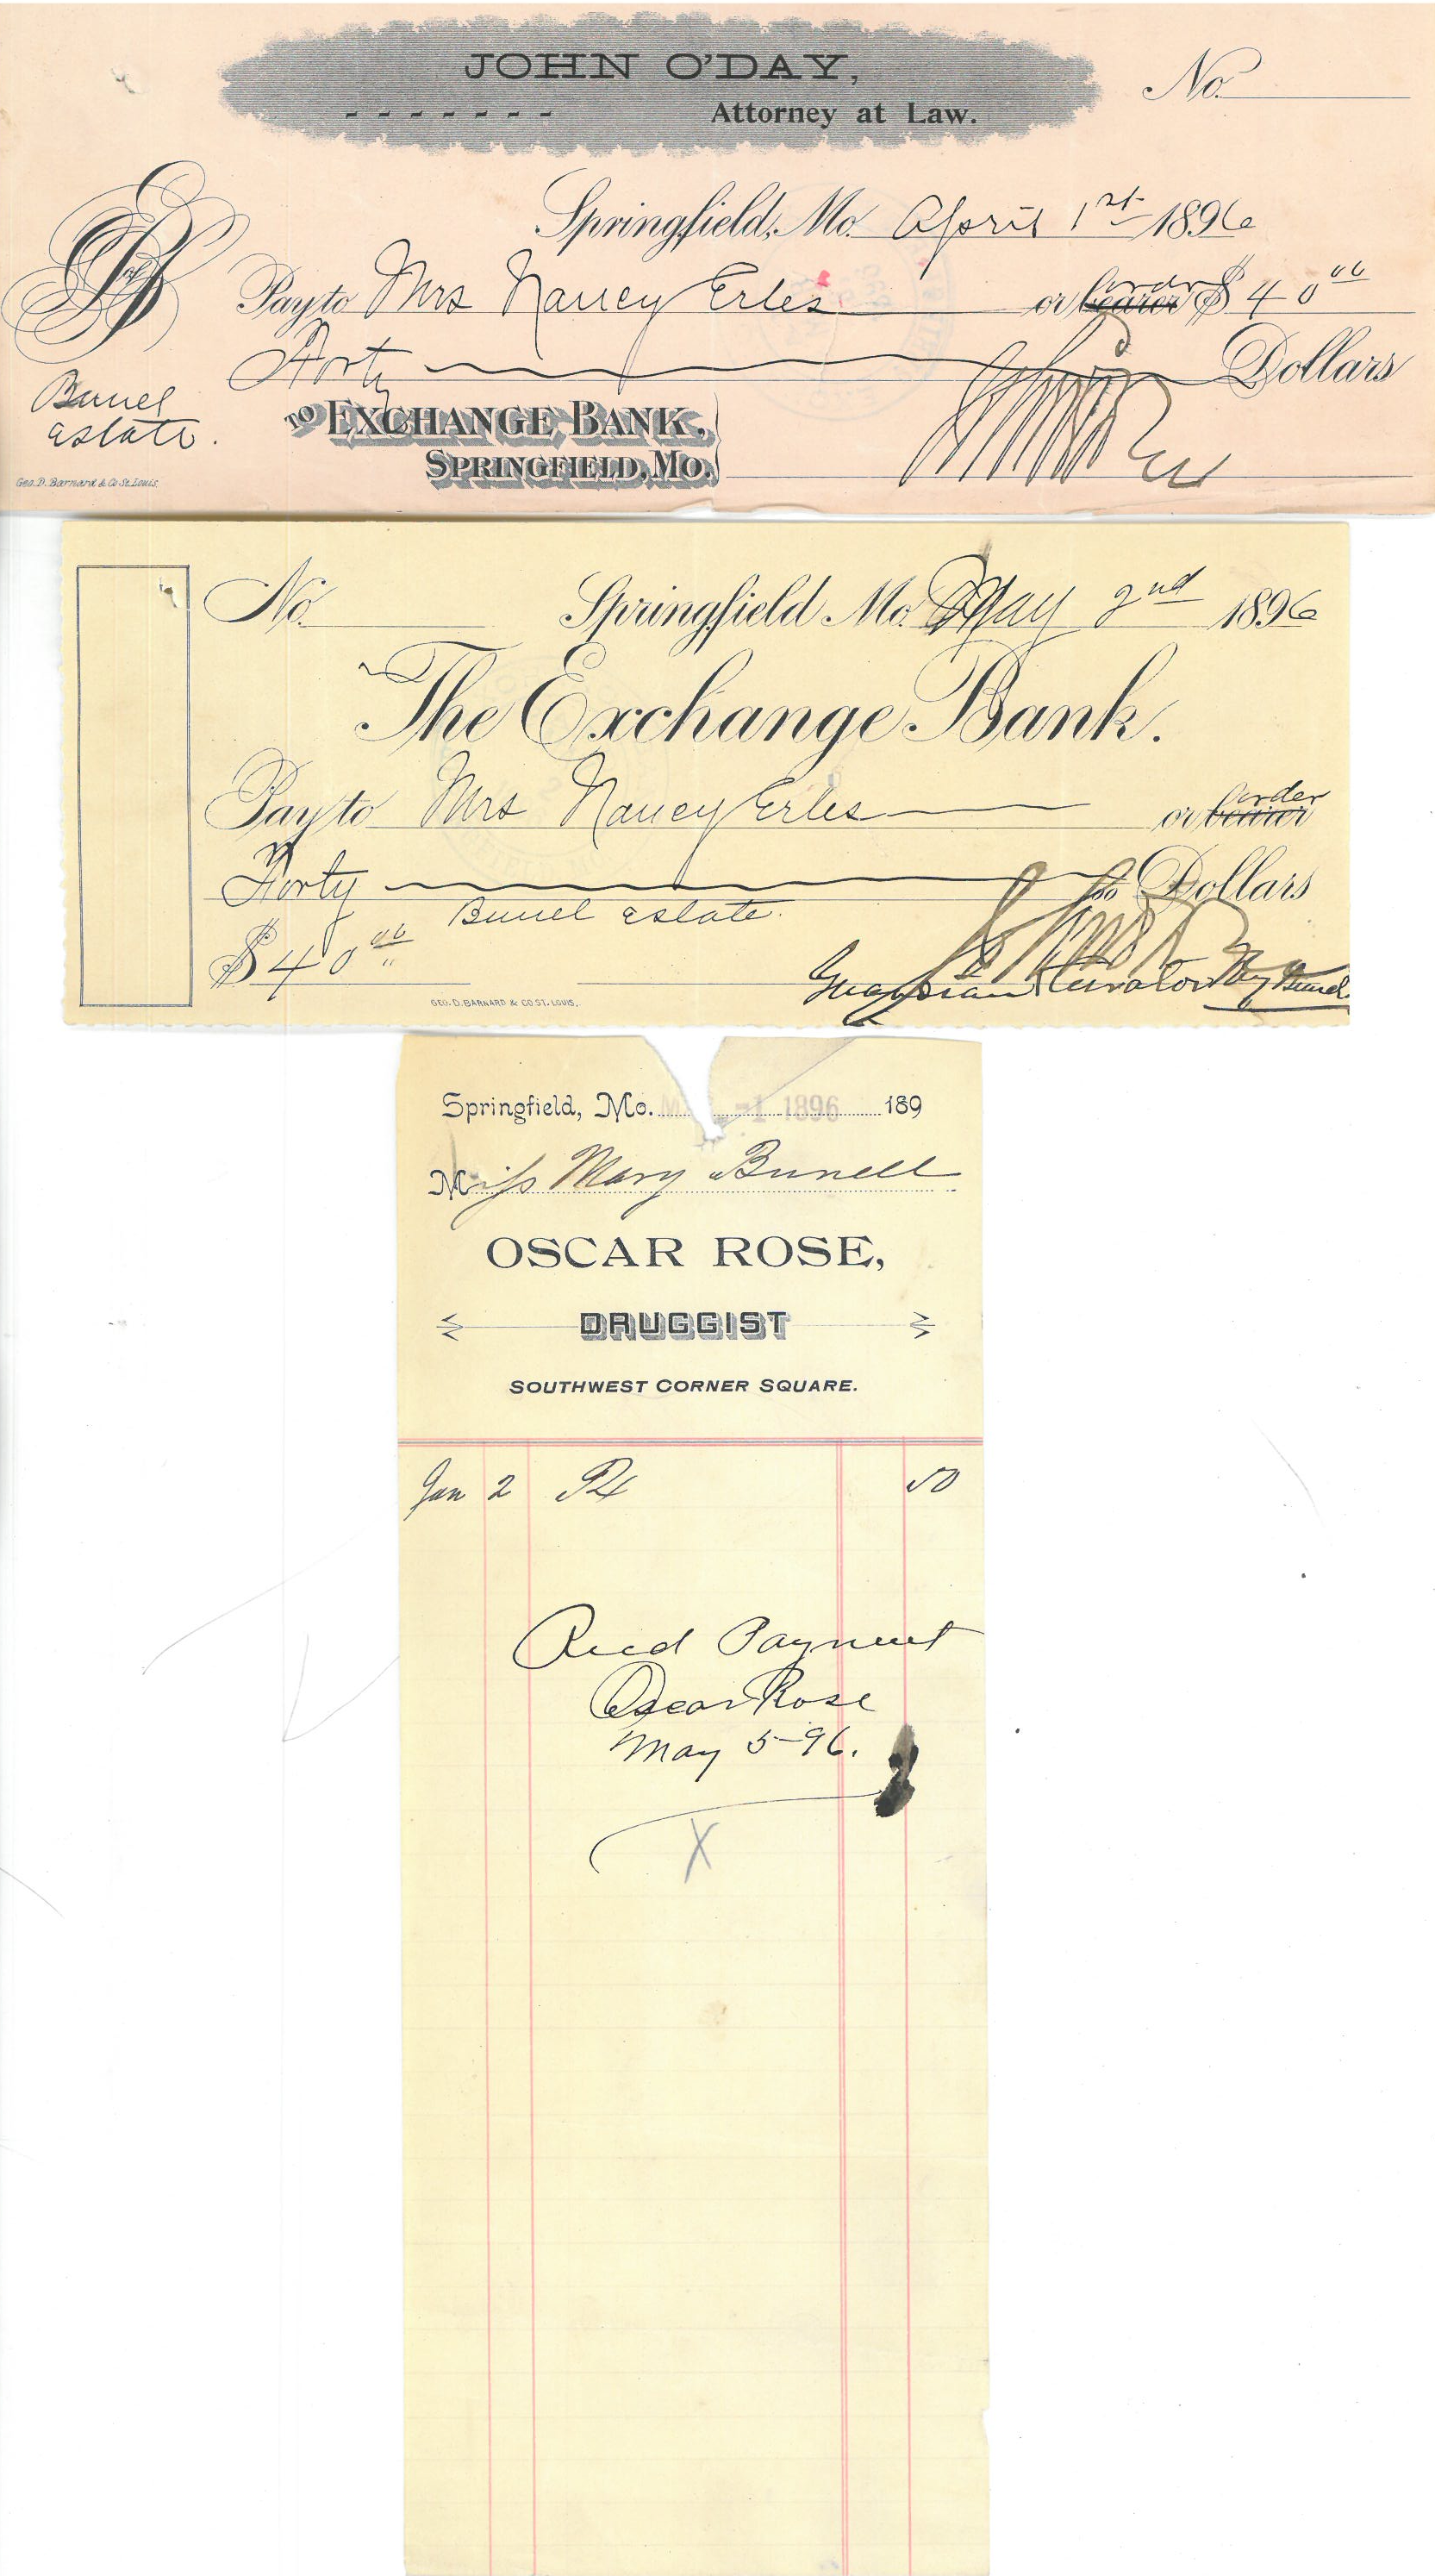 JOHN O'DAY,
Attorney at Law.
No.
Springfield, Mo. April 1st 1896
Pay to Mrs Nancy Erles or bearer order $ 40 00
Forty Dollars
Burrel
Estate.
TO EXCHANGE BANK,
SPRINGFIELD, MO.
Geo. D. Barnard & Co St. Louis
No.
Springfield Mo. May 2nd 1896
The Exchange Bank.
Pay to Mrs Nancy Erles or bearer order
Forty Dollars
Burrel Estate.
$ 40 00
Guardian Curator Burrel
GEO. D. BARNARD & CO ST. LOUIS.
Springfield, Mo. -1 1896 189
Miss Mary Burrell
OSCAR ROSE,
DRUGGIST
SOUTHWEST CORNER SQUARE.
Jan 2 Rx 50
Recd Payment
Oscar Rose
May 5-96.
X